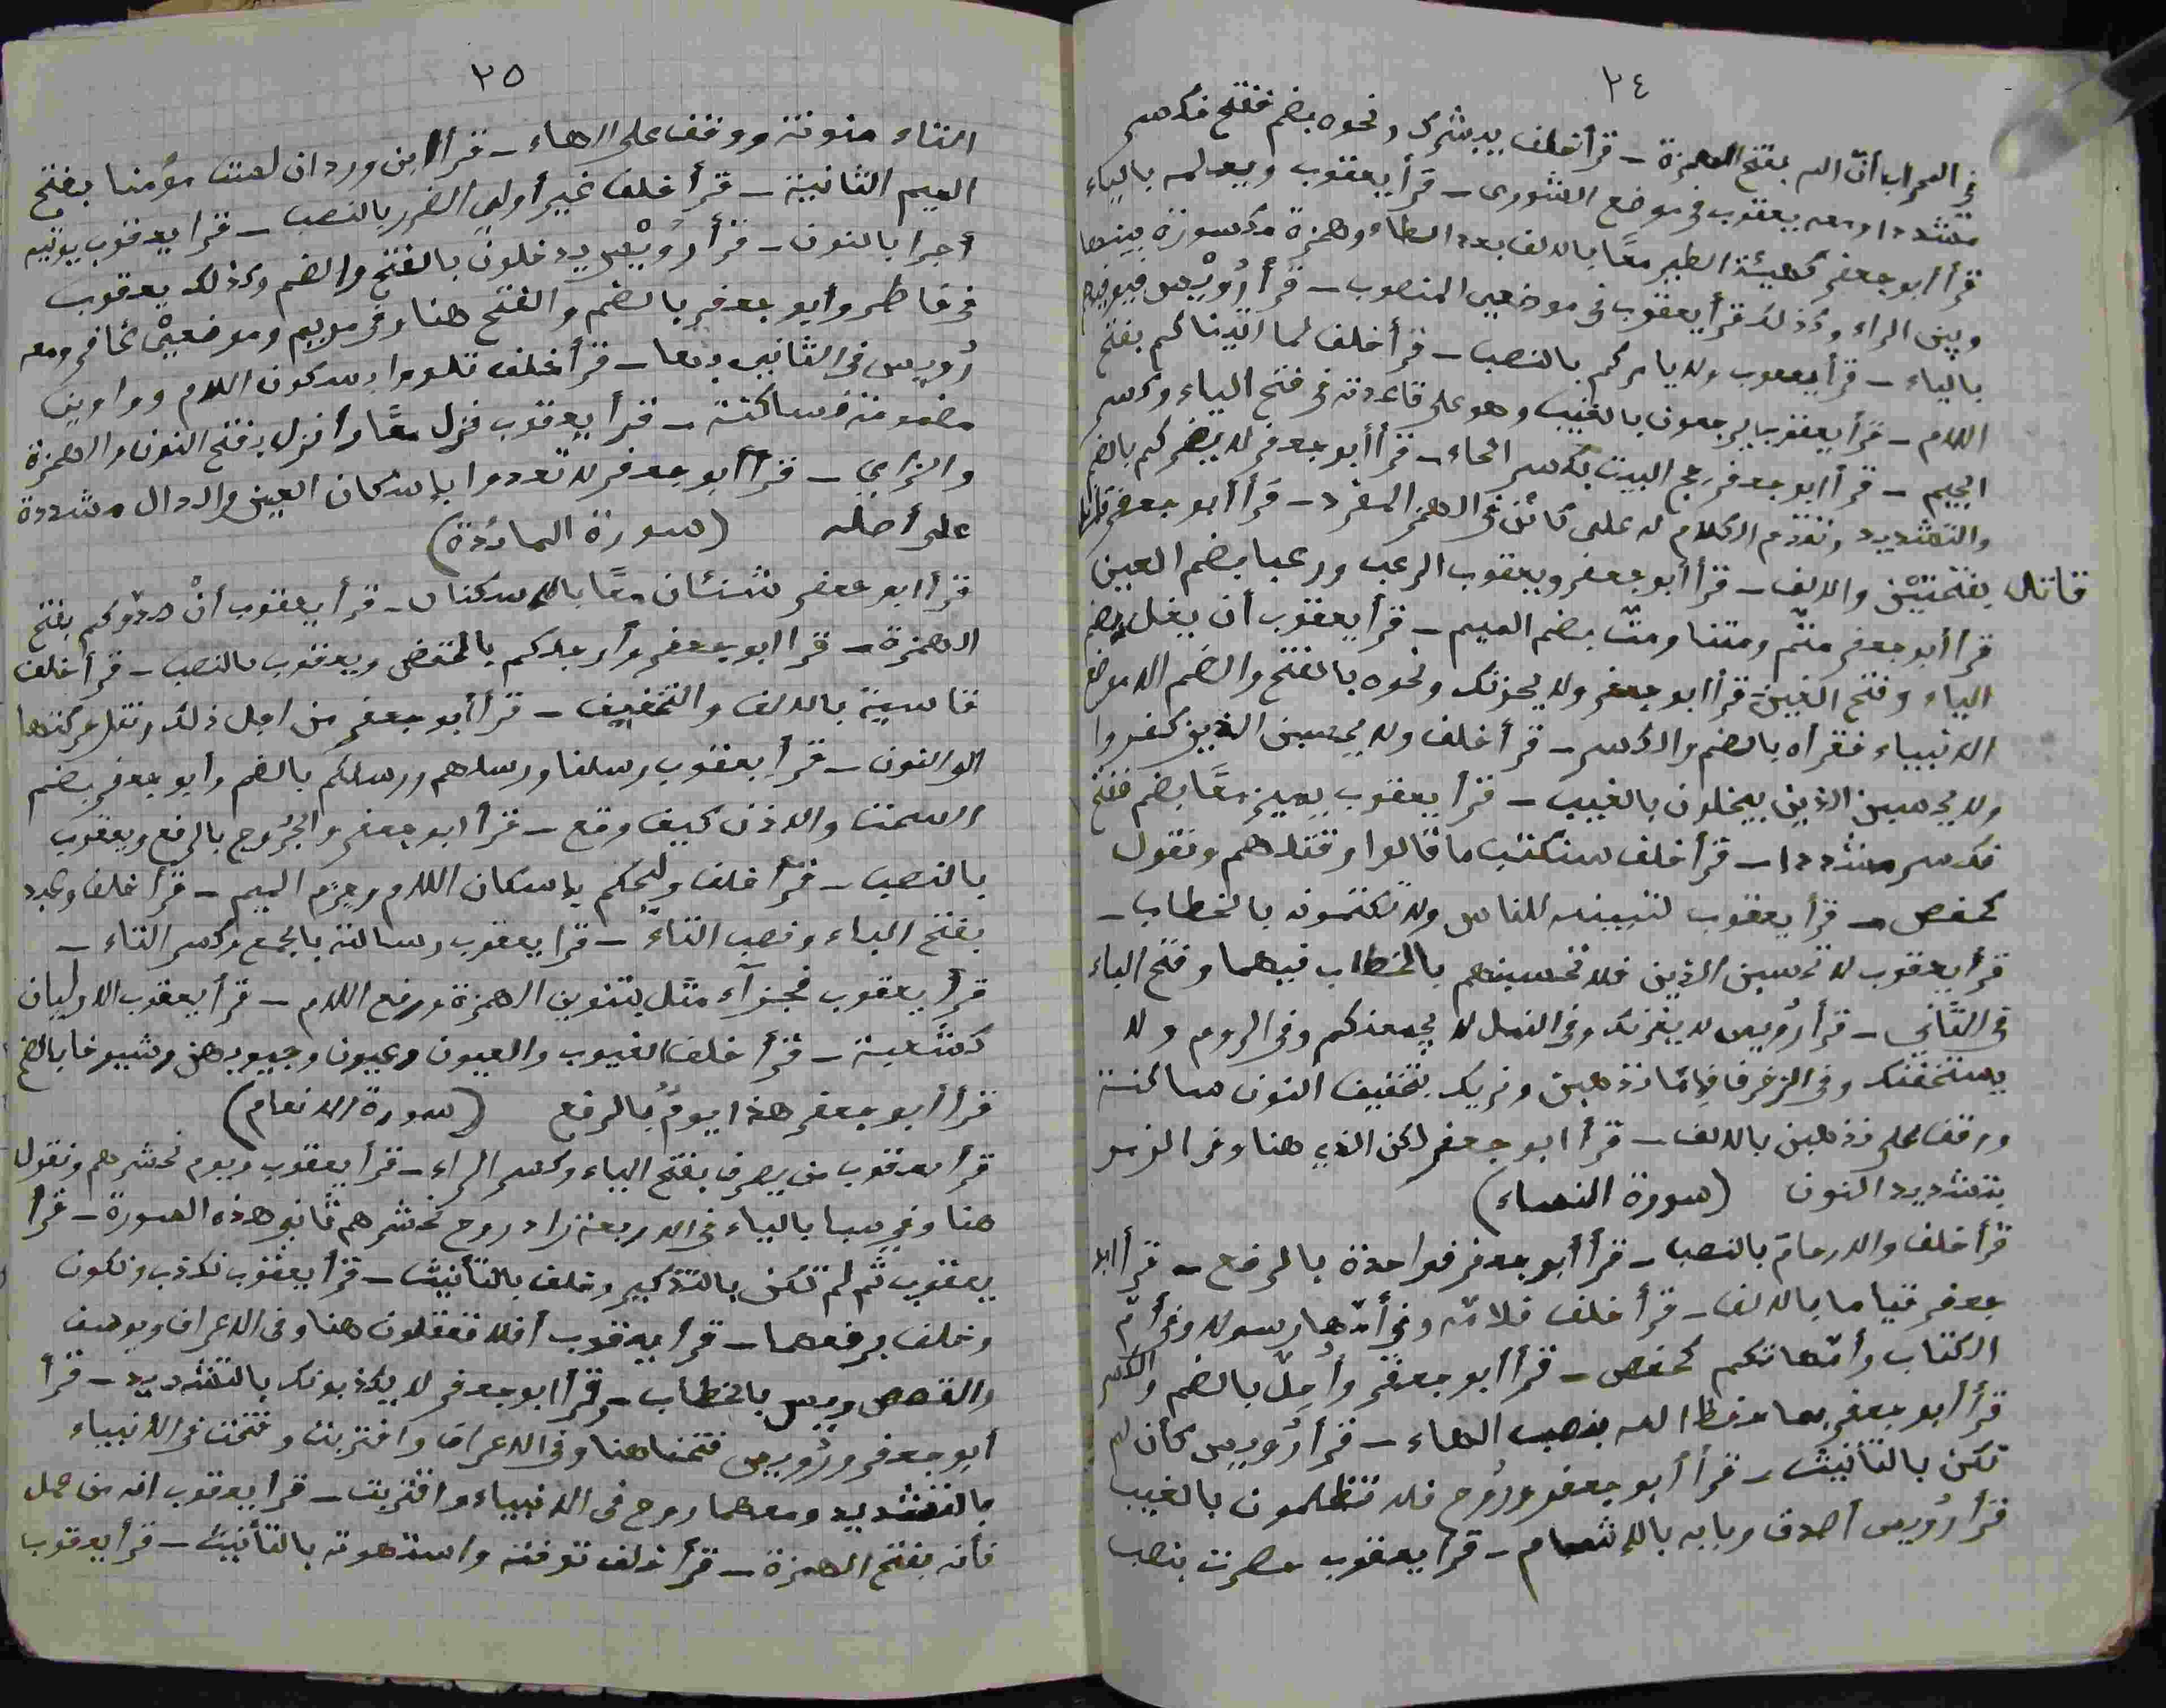 ٢٤
في المحراب أنّ الله بفتح الهمزة - قرأ خلف يبشرك ونحوه بضم ففتح فكسر
مشددا ومعه يعقوب في موضع الشورى - قرأ يعقوب ويعلمه بالياء
قرأ ابو جعفر كهيئة الطير معًا بالالف بعد الطاء وهمزة مكسورة بينها
وبين الراء وكذلك قرأ يعقوب في موضعي المنصوب - قرأ رُوَيْس فيوفيهم
بالياء - قرأ يعقوب ولا يأمركم بالنصب - قرأ خلف لما آتيتكم بفتح
اللام - قرأ يعقوب يرجعون بالغيب وهو على قاعدته في فتح الياء وكسر
الجيم - قرأ ابو جعفر حج البيت بكسر الحاء - قرأ أبو جعفر لا يضركم بالضم
والتشديد وتقدم الكلام له على كائن في الهمز المفرد - قرأ أبو جعفر
قاتل بفتحتين والالف - قرأ أبو جعفر ويعقوب الرعب ورعبا بضم العين
قرأ أبو جعفر متّم ومتنا ومتّ بضم الميم - قرأ يعقوب أن يغل بضم
الياء وفتح الغين قرأ ابو جعفر ولا يحزنك ونحوه بالفتح والضم الا موضع
الانبياء فقرأه بالضم والكسر - قرأ خلف ولا يحسبن الذين كفروا
ولا يحسبن الذين يبخلون بالغيب - قرأ يعقوب يميز معًا بضم ففتح
فكسر مشددا - قرأ خلف سنكتب ما قالوا وقتلهم ونقول
كحفص - قرأ يعقوب لتبيننه للناس ولا تكتمونه بالخطاب -
قرأ يعقوب لا تحسبن الذين فلا تحسبنهم بالخطاب فيهما وفتح الباء
في الثاني - قرأ رُويس لا يغرنك وفي النمل لا يحطمنكم وفي الروم ولا
يستخفنك وفي الزخرف فإمّا نذهبن ونرينك بتخفيف النون ساكنة
ووقف على نذهبن بالالف - قرأ ابو جعفر لكن الذين هنا وفي الزمر
بتشديد النون (سورة النساء)
قرأ خلف والارحامَ بالنصب - قرأ أبو جعفر فواحدة بالرفع - قرأ ابو
جعفر قياما بالالف - قرأ خلف فلأمّه وفي أمّها رسولا وفي أمّ
الكتاب وأمّهاتكم كحفص - قرأ أبو جعفر وأُحِلّ بالضم والكسر
قرأ أبو جعفر بما حفظ الله بنصب الهاء - قرأ رُويس كأن لم
تكن بالتأنيث - قرأ أبو جعفر ورُوح فلا تظلمون بالغيب
قرأ رُويس أصدق وبابه بالإشمام - قرأ يعقوب حصرت بنصب
٢٥
التاء منونة ووقف على الهاء - قرأ ابن وردان لست مؤمنا بفتح
الميم الثانية - قرأ خلف غير أولي الضرر بالنصب - قرأ يعقوب يؤتيه
أجرا بالنون - قرأ رُوَيْس يدخلون بالفتح والضم وكذلك يعقوب
في فاطر وأبو جعفر بالضم والفتح هنا وفي مريم وموضعيْ غافر ومعه
رُويس في الثاني منها - قرأ خلف تلووا بسكون اللام وواوين
مضمومة فساكنة - قرأ يعقوب نزل معًا وأنزل بفتح النون والهمزة
والزاي - قرأ أبو جعفر لا تعدوا بإسكان العين والدال مشددة
على أصله (سورة المائدة)
قرأ ابو جعفر شنئان معًا بالإسكان - قرأ يعقوب أنْ صدّوكم بفتح
الهمزة - قرأ ابو جعفر وأرجلكم بالخفض ويعقوب بالنصب - قرأ خلف
قاسية بالالف والتخفيف - قرأ أبو جعفر من اجل ذلك ونقل حركتها
الى النون - قرأ يعقوب رسلنا ورسلهم ورسلكم بالضم وأبو جعفر بضم
السحت والاذن كيف وقع - قرأ ابو جعفر والجُرُوح بالرفع ويعقوب
بالنصب - قرأ خلف وليحكم بإسكان اللام وجزم الميم - قرأ خلف وعبد
بفتح الباء ونصب التاء - قرأ يعقوب رسالته بالجمع وكسر التاء -
قرأ يعقوب فجزآء مثل بتنوين الهمزة ورفع اللام - قرأ يعقوب الاوليان
كشعبة - قرأ خلف الغيوب والعيون وعيون وجيوبهن وشيوخا بالضم
قرأ أبو جعفر هذا يومُ بالرفع (سورة الانعام)
قرأ يعقوب من يصرف بفتح الياء وكسر الراء - قرأ يعقوب ويوم نحشرهم ونقول
هنا وفي سبا بالياء في الاربعة زاد روح نحشرهم ثاني هذه السورة - قرأ
يعقوب ثم لم تكن بالتذكير وخلف بالتأنيث - قرأ يعقوب نكذب ونكون
وخلف برفعهما - قرأ يعقوب أفلا تعقلون هنا وفي الاعراف ويوسف
والقصص ويس بالخطاب - قرأ ابو جعفر لا يكذبونك بالتشديد - قرأ
أبو جعفر ورُويس فتحنا هنا وفي الاعراف واقتربت وفتحت في الانبياء
بالتشديد ومعهما روح في الانبياء واقتربت - قرأ يعقوب انه من عمل
فأنه بفتح الهمزة - قرأ خلف توفته واستهوته بالتأنيث - قرأ يعقوب